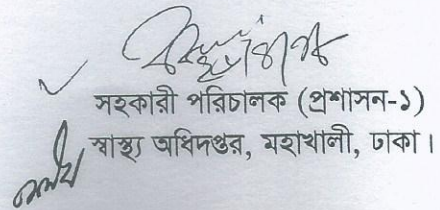 সহকারী পরিচালক (প্রশাসন-১)
স্বাস্থ্য অধিদপ্তর, মহাখালী, ঢাকা।